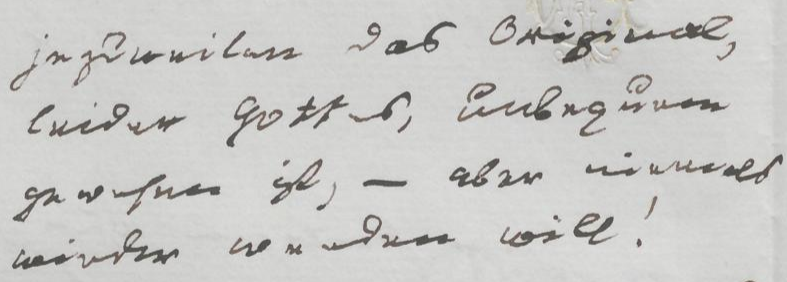 jezuweilen das Original,
leider Gottes, unbequem
gewesen ist, — aber niemals
wieder werden will!